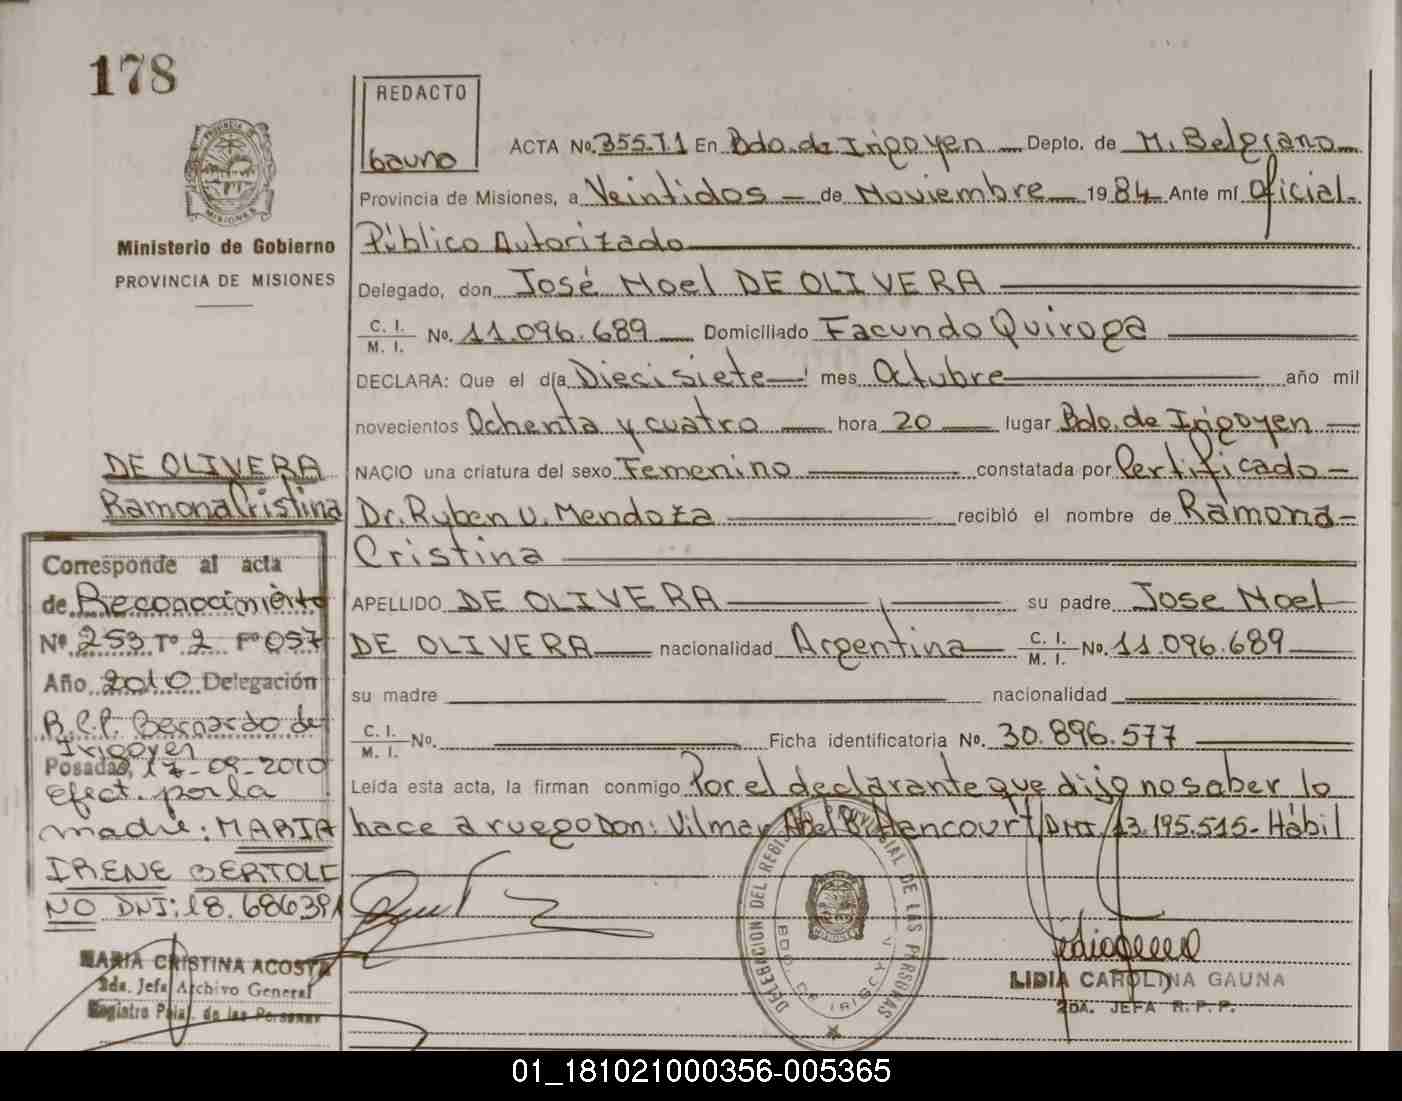 178
REDACTO
Gauno
PROVINCIA DE MISIONES
Ministerio de Gobierno
PROVINCIA DE MISIONES
ACTA No. 355.T1 En Bdo. de Irigoyen Depto. de M. Belgrano
Provincia de Misiones, a Veintidos de Noviembre 1984 Ante mí Oficial
Público Autorizado
Delegado, don José Noel DE OLIVERA
C. I. M. I. No. 11.096.689 Domiciliado Facundo Quiroga
DECLARA: Que el día Diecisiete mes Octubre año mil
novecientos Ochenta y cuatro hora 20 lugar Bdo. de Irigoyen
NACIO una criatura del sexo Femenino constatada por Certificado
Dr. Ryben U. Mendoza recibió el nombre de Ramona
Cristina
APELLIDO DE OLIVERA su padre Jose Noel
DE OLIVERA nacionalidad Argentina C. I. M. I. No. 11.096.689
su madre nacionalidad
C. I. M. I. No. Ficha identificatoria No. 30.896.577
Leída esta acta, la firman conmigo Por el declarante que dijo no saber lo
hace a ruego Don: Vilmar Abel Dancourt DNI. 13.195.515- Hábil
DE OLIVERA
Ramona Cristina
Corresponde al acta
de Reconocimiento
Nº 253 Tº 2 Fº 057
Año 2010 Delegación
R.P.P. Bernardo de
Irigoyen
Posadas, 17-09-2010
efect. por la
madre: MARIA
IRENE BERTOLI
NO DNI: 18.686391
MARIA CRISTINA ACOSTA
2da. Jefa Archivo General
Registro Pcial. de las Personas
DELEGACION DEL REGISTRO PROVINCIAL DE LAS PERSONAS
BDO. DE IRIGOYEN
MISIONES
LIDIA CAROLINA GAUNA
2DA. JEFA R. P. P.
01_181021000356-005365